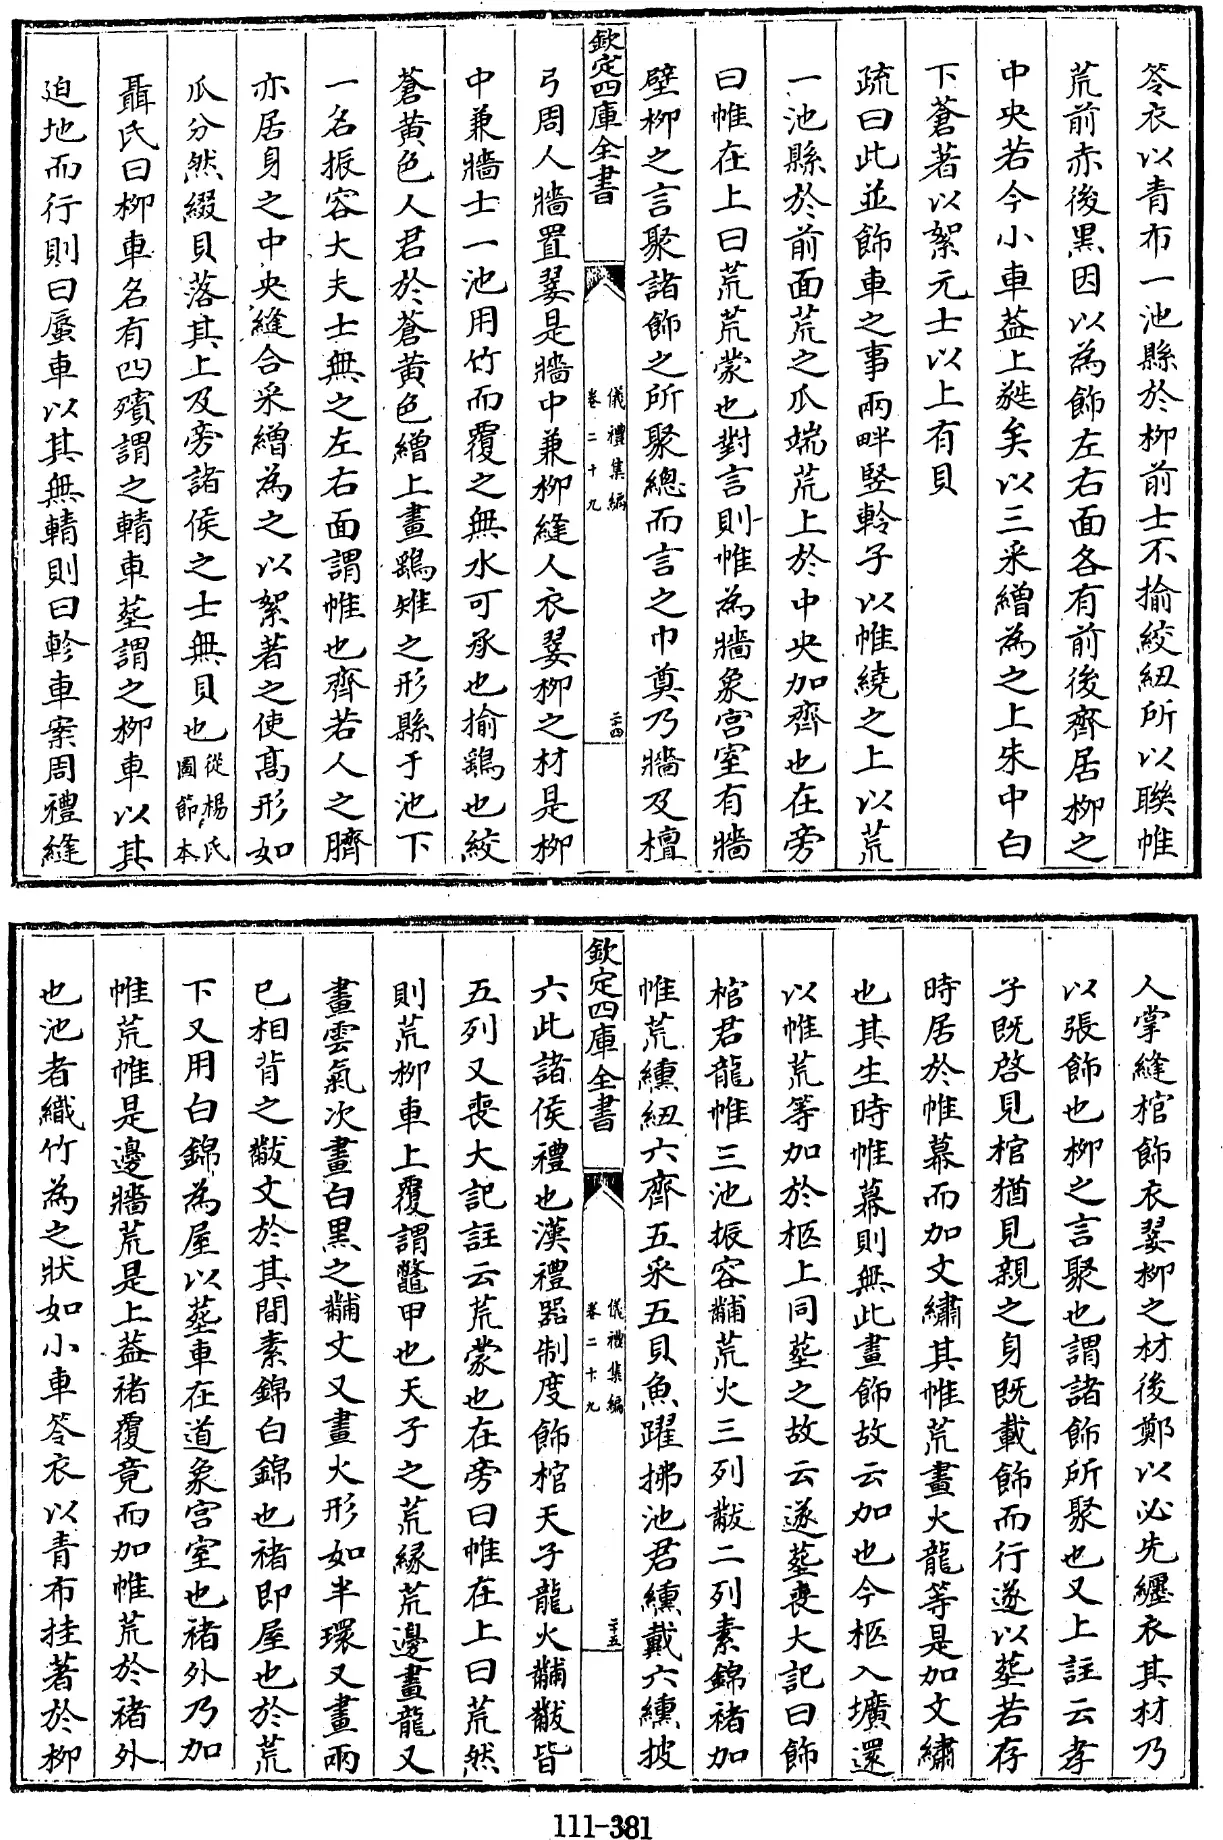 笭衣以青布一池縣於柳前士不揄絞紐所以聯帷
荒前赤後黒因以為飾左右面各有前後齊居柳之
中央若今小車葢上蕤矣以三采繒為之上朱中白
下蒼著以絮元士以上有貝
疏曰此並飾車之事兩畔竪軨子以帷繞之上以荒
一池縣於前面荒之爪端荒上於中央加齊也在旁
曰帷在上曰荒荒蒙也對言則帷為牆象宫室有牆
壁柳之言聚諸飾之所聚總而言之巾奠乃牆及檀
欽定四庫全書
儀禮集編
卷二十九
二十四
弓周人牆置翣是牆中兼柳縫人衣翣柳之材是柳
中兼牆士一池用竹而覆之無水可承也揄鷂也絞
蒼黄色人君於蒼黄色繒上畫鷂雉之形縣于池下
一名振容大夫士無之左右面謂帷也齊若人之臍
亦居身之中央縫合采繒為之以絮著之使髙形如
瓜分然綴貝落其上及旁諸侯之士無貝也從楊氏圖節本
聶氏曰柳車名有四殯謂之輤車塟謂之柳車以其
迫地而行則曰蜃車以其無輤則曰軫車案周禮縫
人掌縫棺飾衣翣柳之材後鄭以必先纒衣其材乃
以張飾也柳之言聚也謂諸飾所聚也又上註云孝
子既啓見棺猶見親之身既載飾而行遂以塟若存
時居於帷幕而加文繡其帷荒畫火龍等是加文繡
也其生時帷幕則無此畫飾故云加也今柩入壙還
以帷荒等加於柩上同塟之故云遂塟喪大記曰飾
棺君龍帷三池振容黼荒火三列黻二列素錦褚加
帷荒纁紐六齊五采五貝魚躍拂池君纁戴六纁披
欽定四庫全書
儀禮集編
卷二十九
二十五
六此諸侯禮也漢禮器制度飾棺天子龍火黼黻皆
五列又喪大記註云荒蒙也在旁曰帷在上曰荒然
則荒柳車上覆謂鼈甲也天子之荒縁荒邊畫龍又
畫雲氣次畫白黒之黼文又畫火形如半環又畫兩
已相背之黻文於其間素錦白錦也褚即屋也於荒
下又用白錦為屋以塟車在道象宫室也褚外乃加
帷荒帷是邊牆荒是上葢褚覆竟而加帷荒於褚外
也池者織竹為之狀如小車笭衣以青布挂著於柳
111-381